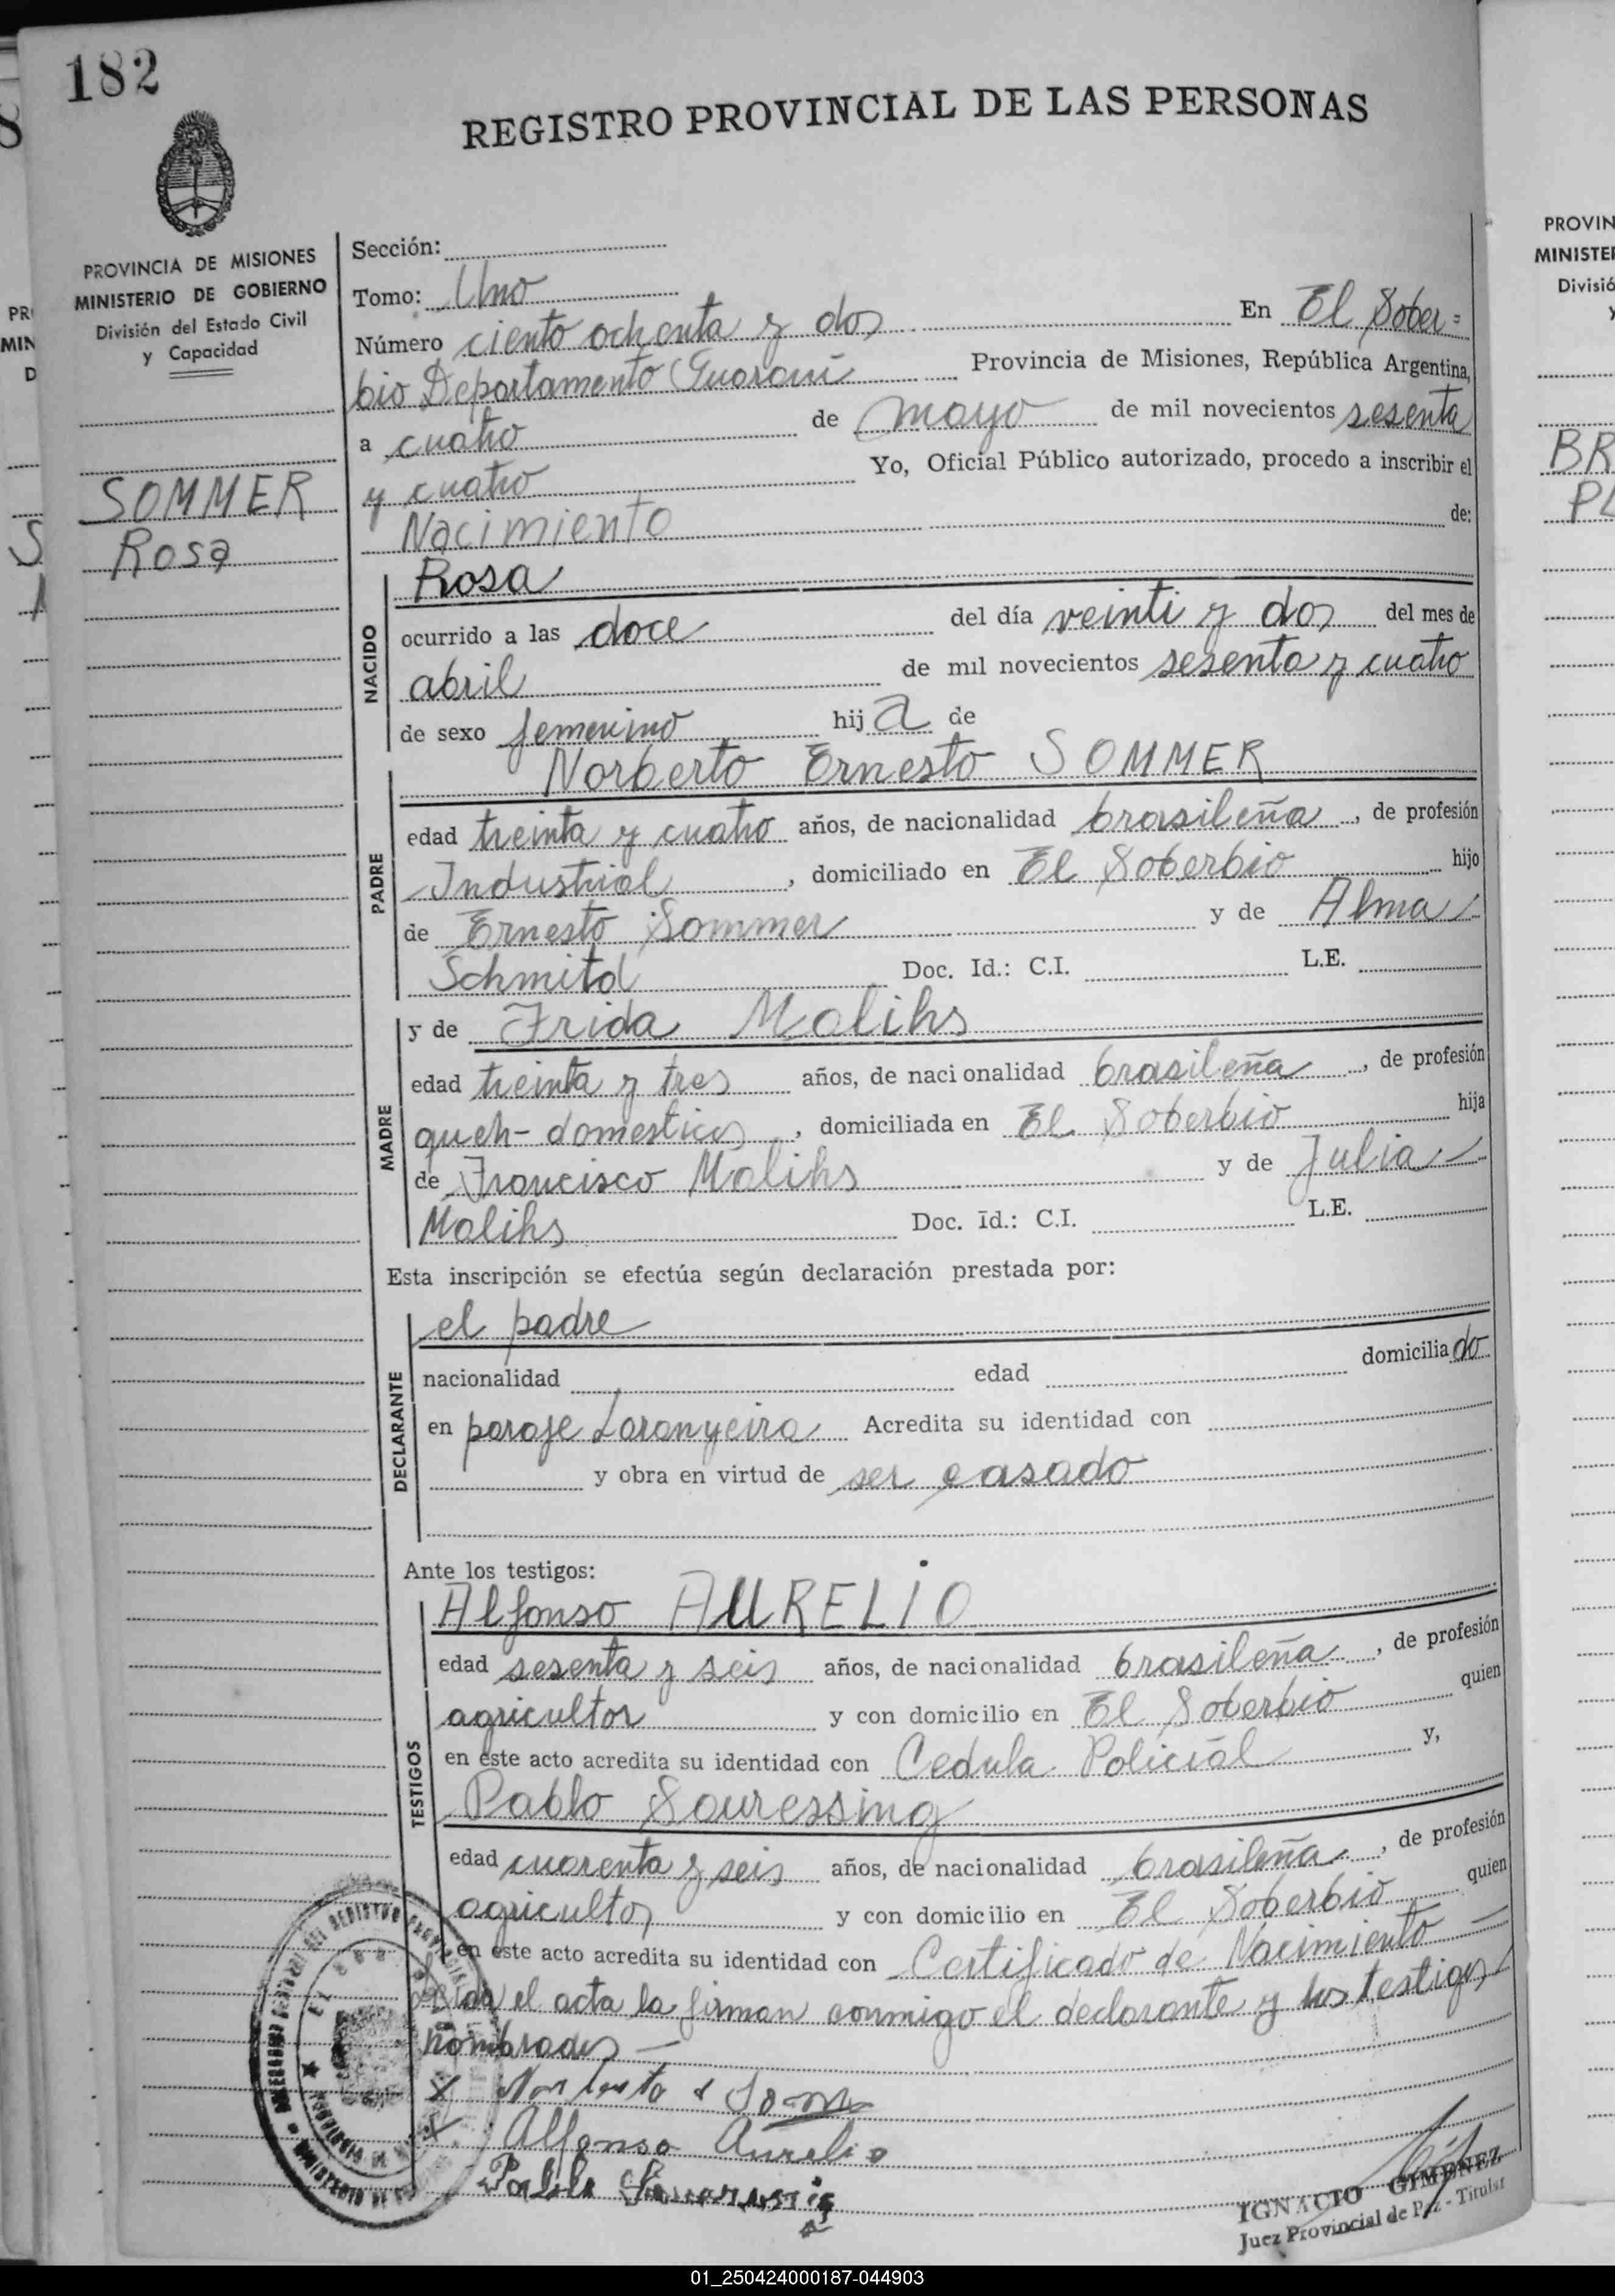 182
REGISTRO PROVINCIAL DE LAS PERSONAS
PROVINCIA DE MISIONES
MINISTERIO DE GOBIERNO
División del Estado Civil
y Capacidad
SOMMER
Rosa
Sección:
Tomo: Uno
Número ciento ochenta y dos En El Sober=
bio Departamento Guaraní Provincia de Misiones, República Argentina,
a cuatro de mayo de mil novecientos sesenta
y cuatro Yo, Oficial Público autorizado, procedo a inscribir el
Nacimiento de:
NACIDO
Rosa
ocurrido a las doce del día veinti y dos del mes de
abril de mil novecientos sesenta y cuatro
de sexo femenino hija de
PADRE
Norberto Ernesto SOMMER
edad treinta y cuatro años, de nacionalidad brasileña, de profesión
Industrial, domiciliado en El Soberbio hijo
de Ernesto Sommer y de Alma
Schmitd Doc. Id.: C.I. L.E.
MADRE
y de Frida Malihs
edad treinta y tres años, de nacionalidad brasileña, de profesión
queh-domesticos, domiciliada en El Soberbio hija
de Francisco Malihs y de Julia
Malihs Doc. Id.: C.I. L.E.
Esta inscripción se efectúa según declaración prestada por:
DECLARANTE
el padre
nacionalidad edad domiciliado
en paraje Laranyeira Acredita su identidad con
y obra en virtud de ser casado
Ante los testigos:
TESTIGOS
Alfonso AURELIO
edad sesenta y seis años, de nacionalidad brasileña, de profesión
agricultor y con domicilio en El Soberbio quien
en este acto acredita su identidad con Cedula Policial y,
Pablo Sauressing
edad cuarenta y seis años, de nacionalidad brasileña, de profesión
agricultor y con domicilio en El Soberbio quien
en este acto acredita su identidad con Certificado de Nacimiento
el acta la firman conmigo el declarante y los testigos
nombrados
x Norberto
x Alfonso Aurelio
Pablo
IGNACIO GIMENEZ
Juez Provincial de Paz - Titular
PROVIN
MINISTER
Divisió
BR
PL
01_250424000187-044903